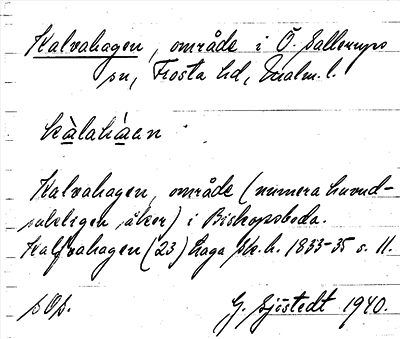 Kalvahagen, område i Ö. Sallerups
sn, Frosta hd, Malm. l.
kàlahàan
Kalvahagen, område (numera huvud-
sakligen åker) i Biskopsboda.
Kalfvahagen (23) haga Sk. h. 1833-35 s. 11.
G. Sjöstedt 1940.